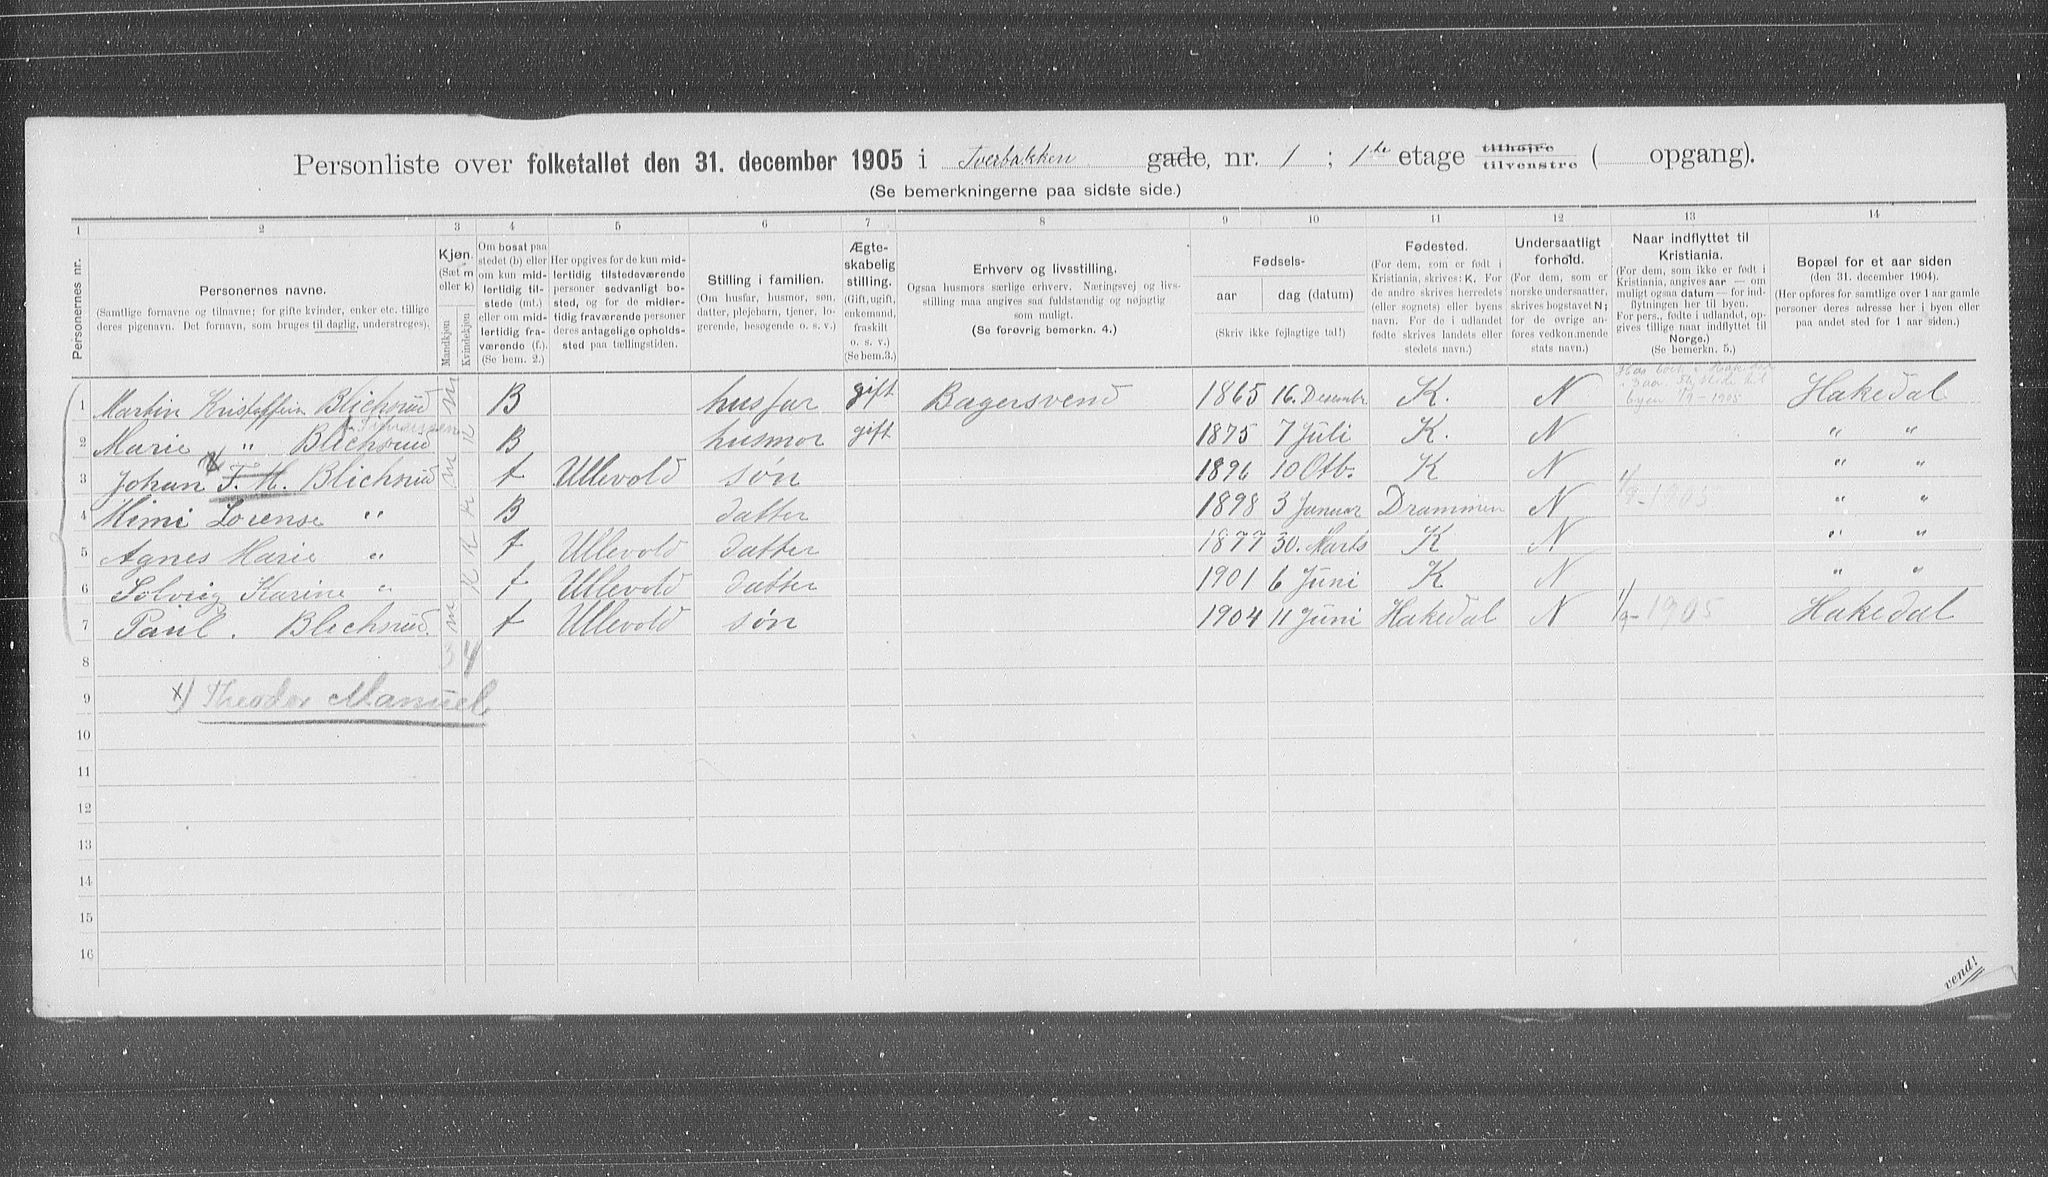 Personliste over folketallet den 31. december 1905 i Tverbakken gade, nr. 1 ; 1ste etage tilhøjre tilvenstre ( opgang).
(Se bemerkningerne paa sidste side.)
1 2 3 4 5 6 7 8 9 10 11 12 13 14
Personernes nr.
Personernes navne.
(Samtlige fornavne og tilnavne; for gifte kvinder, enker etc. tillige
deres pigenavn. Det fornavn, som bruges til daglig, understreges).
Kjøn.
(Sæt m
eller k)
Mandkjøn
Kvindekjøn
Om bosat paa
stedet (b) eller
om kun mid-
lertidig til-
stede (mt.)
eller om mid-
lertidig fra-
værende (f.).
(Se bem. 2.)
Her opgives for de kun mid-
lertidig tilstedeværende
personer sedvanligt bo-
sted, og for de midler-
tidig fraværende personer
deres antagelige opholds-
sted paa tællingstiden.
Stilling i familien.
(Om husfar, husmor, søn,
datter, plejebarn, tjener, lo-
gerende, besøgende o. s. v.)
Ægte-
skabelig
stilling.
(Gift, ugift,
enkemand,
fraskilt
o. s. v.)
(Se bem.3.)
Erhverv og livsstilling.
Ogsaa husmors særlige erhverv. Næringsvej og livs-
stilling maa angives saa fuldstændig og nøjagtig
som muligt.
(Se forøvrig bemerkn. 4.)
Fødsels-
aar dag (datum)
(Skriv ikke fejlagtige tal!)
Fødested.
(For dem, som er født i
Kristiania, skrives: K. For
de andre skrives herredets
(eller sognets) eller byens
navn. For de i udlandet
fødte skrives landets eller
stedets navn.)
Undersaatligt
forhold.
(For dem, som er
norske undersaatter,
skrives bogstavet N;
for de øvrige an-
føres vedkommende
stats navn.)
Naar indflyttet til
Kristiania.
(For dem, som ikke er født i
Kristiania, angives aar — om
muligt ogsaa datum — for ind-
flytningen her til byen.
For pers., fødte i udlandet, op-
gives tillige naar indflyttet til
Norge.)
(Se bemerkn. 5.)
Bopæl for et aar siden
(den 31. december 1904).
(Her opføres for samtlige over 1 aar gamle
personer deres adresse her i byen eller
paa andet sted for 1 aar siden.)
1 Martin Kristoffer Blichsrud m B husfar gift Bagersvend 1865 16. Decembr K. N byen 1/9-1905 Hakedal
2 Marie " Blichsrud k B husmor gift 1875 7 Juli K. N " "
3 Johan x) T. M. Blichsrud m f Ullevold søn 1896 10 Otb. K N " "
4 Mimi Lorense " k B datter 1898 3 Januar Drammen N 1/9-1905 " "
5 Agnes Marie " k f Ullevold datter 1877 30. Marts K N " "
6 Solveig Karine " k f Ullevold datter 1901 6 Juni K N " "
7 Paul. Blichsrud. m f Ullevold søn 1904 11 Juni Hakedal N 1/9-1905 Hakedal
8 3 4
9 x) Theodor Manuel
10
11
12
13
14
15
16
vend!